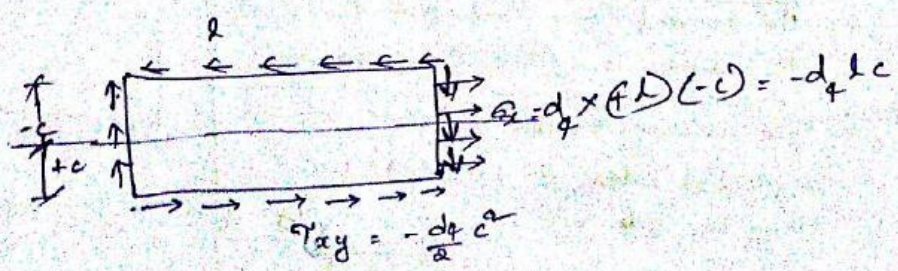 l
-c
+c
σx = d4 × (+l)(-c) = -d4 l c
τxy = - d4/2 c²